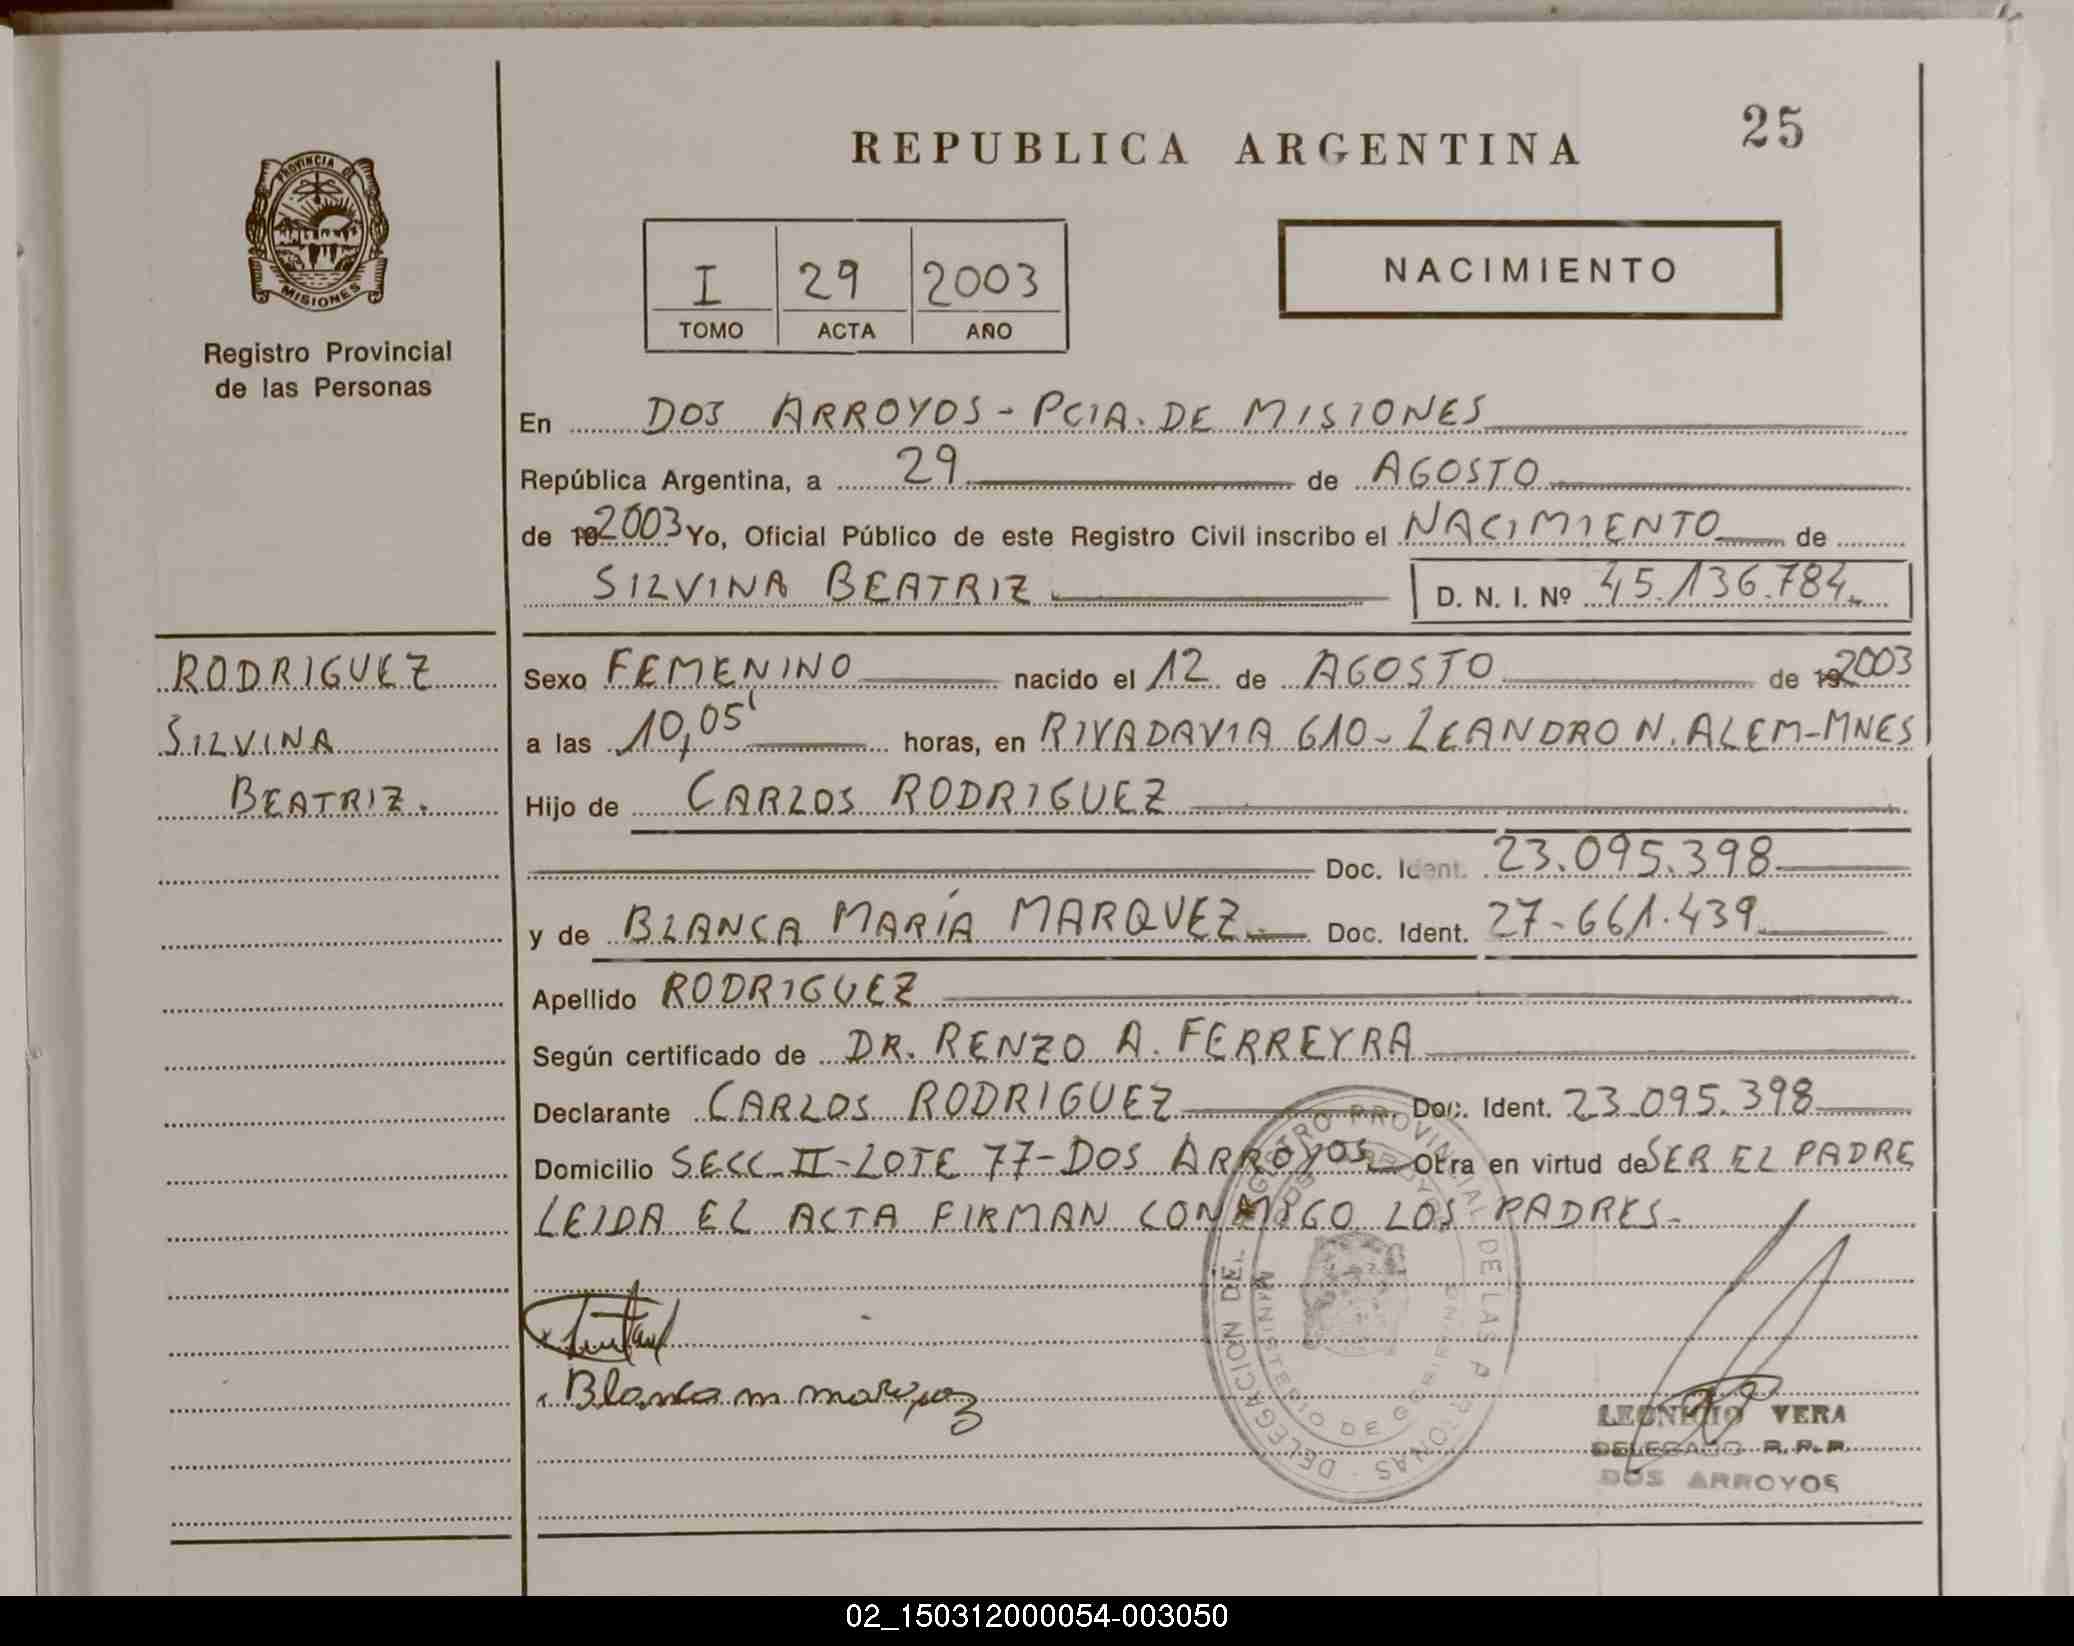 25
REPUBLICA ARGENTINA
PROVINCIA DE
MISIONES
Registro Provincial
de las Personas
I 29 2003
TOMO ACTA AÑO
NACIMIENTO
En DOS ARROYOS - PCIA. DE MISIONES
República Argentina, a 29 de AGOSTO
de 19 2003 Yo, Oficial Público de este Registro Civil inscribo el NACIMIENTO de
SILVINA BEATRIZ D. N. I. Nº 45.136.784
RODRIGUEZ
SILVINA
BEATRIZ.
Sexo FEMENINO nacido el 12 de AGOSTO de 19 2003
a las 10,05' horas, en RIVADAVIA 610 - LEANDRO N. ALEM - MNES
Hijo de CARLOS RODRIGUEZ
Doc. Ident. 23.095.398
y de BLANCA MARÍA MARQUEZ Doc. Ident. 27-661.439
Apellido RODRIGUEZ
Según certificado de DR. RENZO A. FERREYRA
Declarante CARLOS RODRIGUEZ Doc. Ident. 23.095.398
Domicilio SECC II - LOTE 77 - DOS ARROYOS Obra en virtud de SER EL PADRE
LEIDA EL ACTA FIRMAN CONMIGO LOS PADRES.
Blanca m marquez
DELEGACION DEL REGISTRO PROVINCIAL DE LAS PERSONAS
DOS ARROYOS
MINISTERIO DE GOBIERNO
LEONICIO VERA
DELEGADO R. P. P.
DOS ARROYOS
02_150312000054-003050